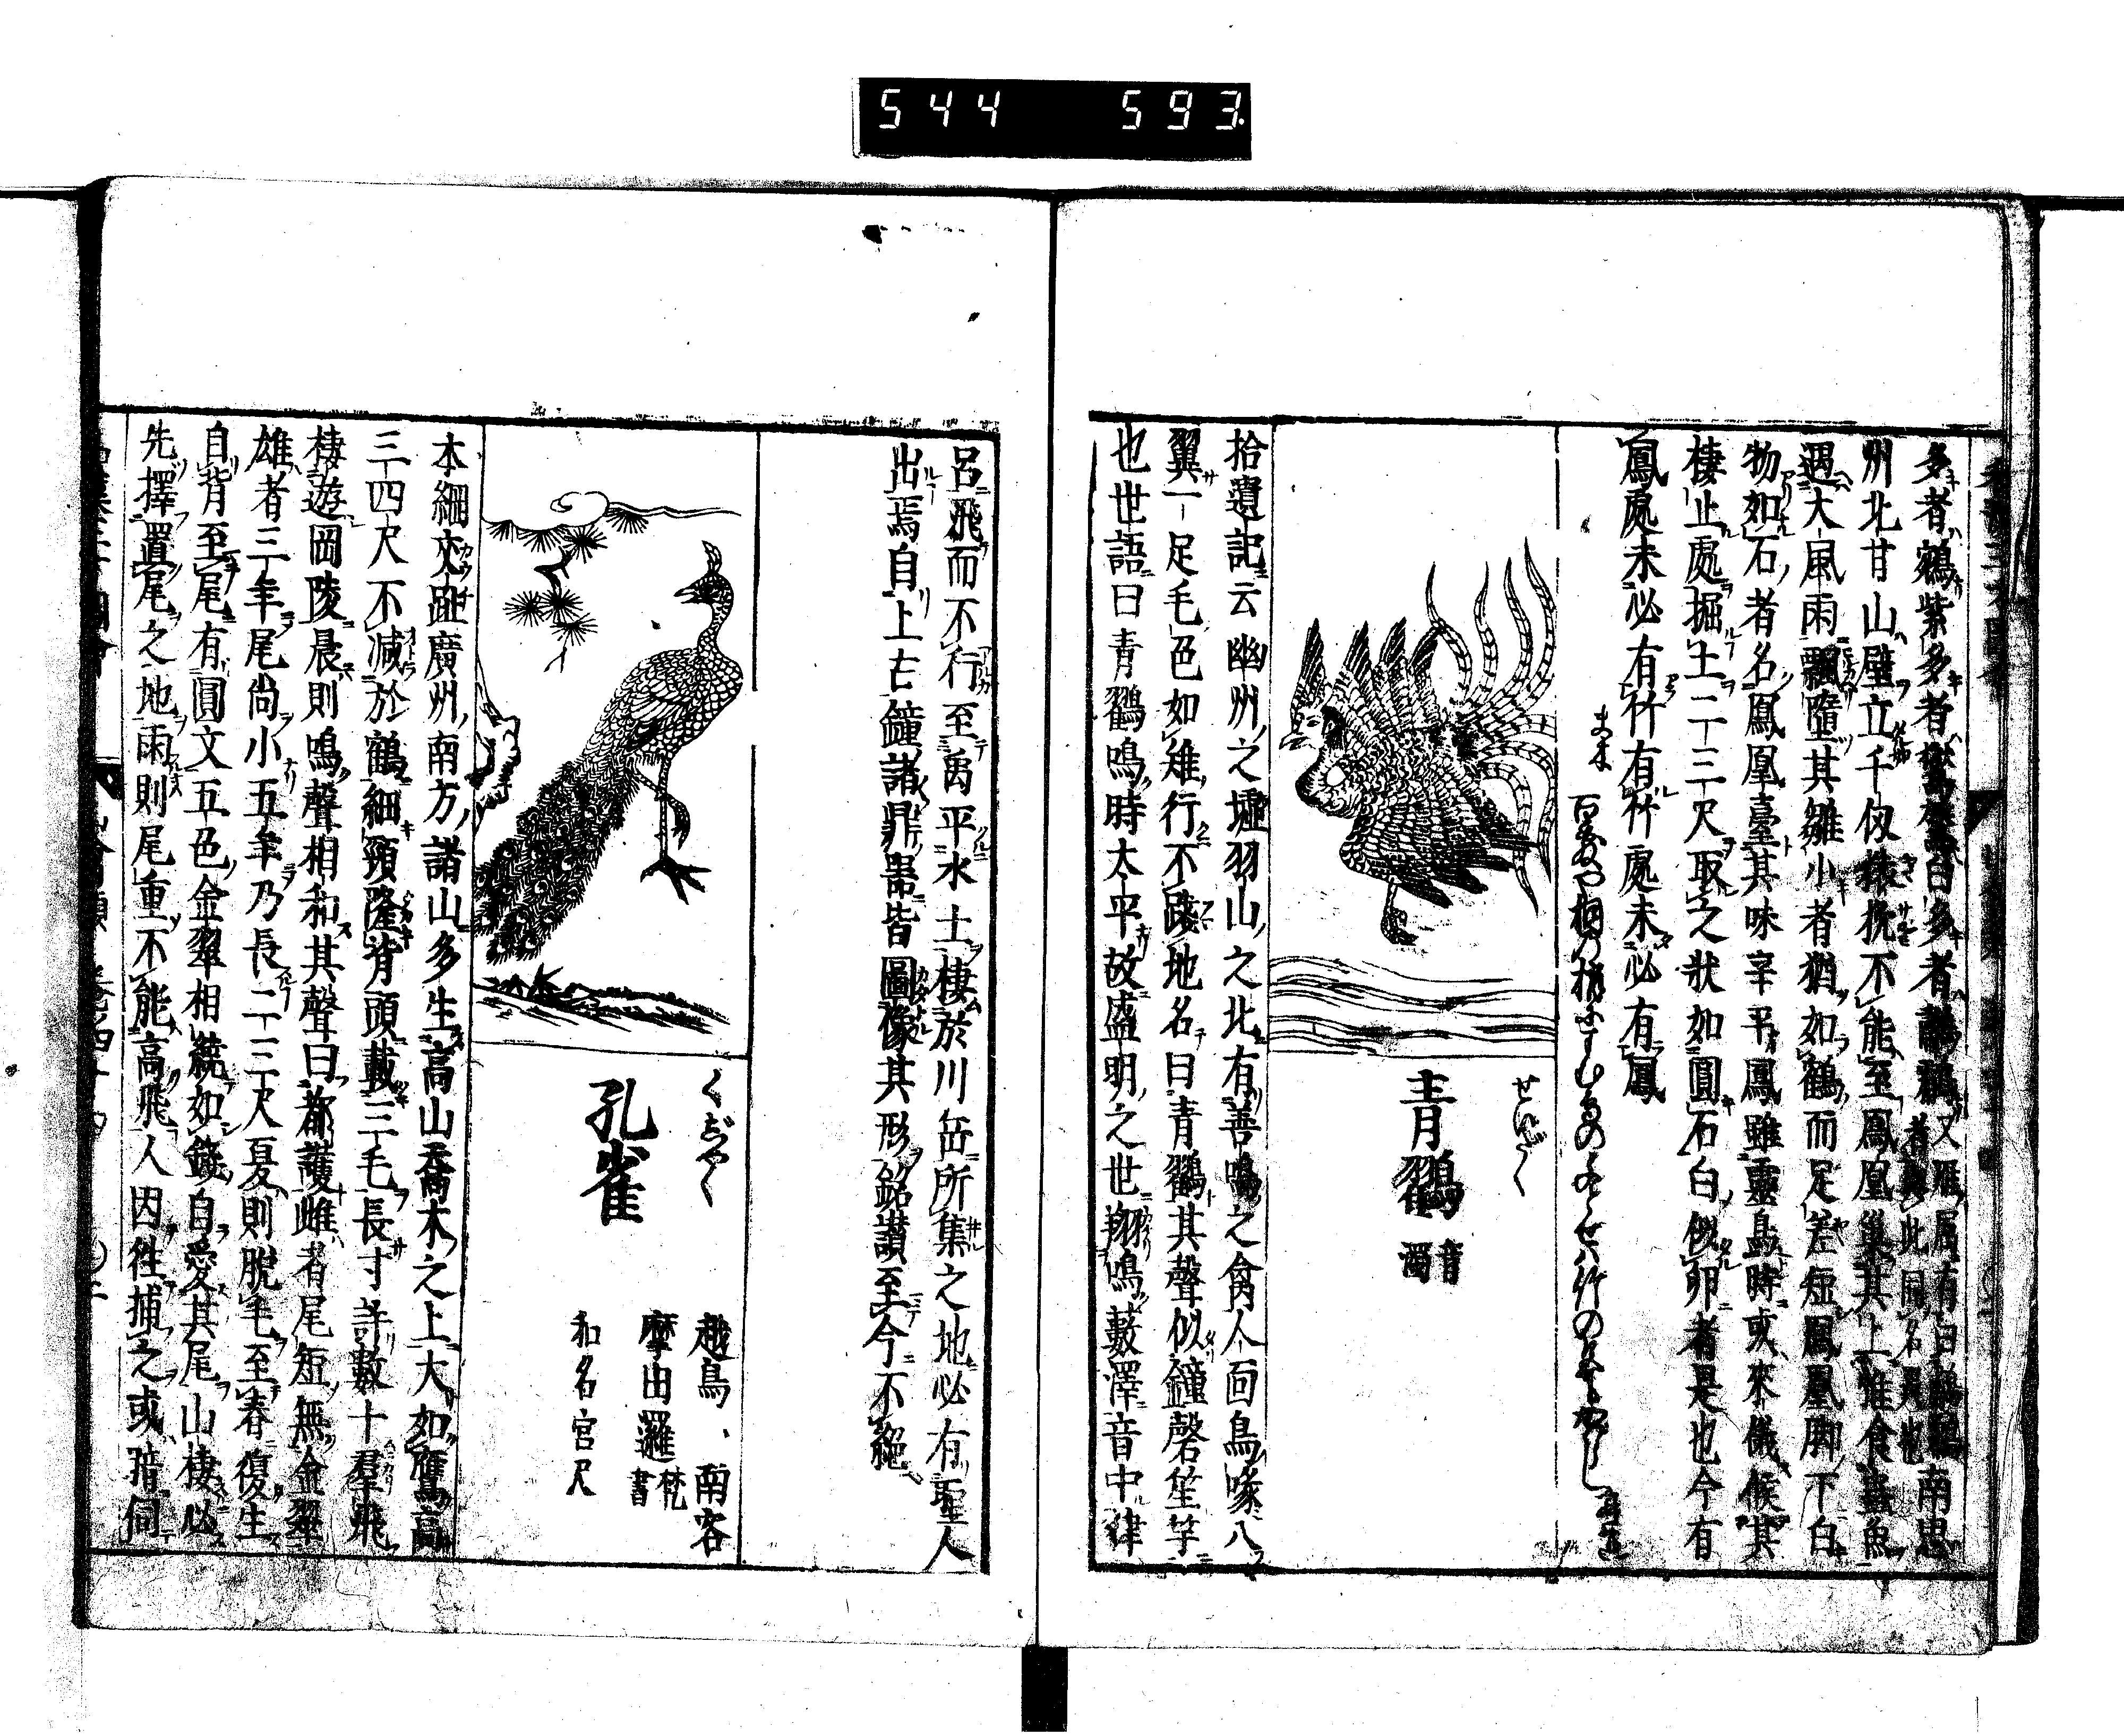 544 593
多者鵷紫多者鸑鷟白多者鷫鸘
州北甘山壁立千仞猿狖不能至鳳凰巢其上惟食蟲魚
遇大風雨飄墮其雛小者猶如鶴而足差短鳳凰脚下白
物如石者名鳳凰臺其味辛平鳳雖靈鳥時或來儀候其
棲止處掘土二三尺取之狀如圓石白似卵者是也今有
鳳處未必有竹有竹處未必有鳳
せいじく
青鸐 音濁
拾遺記云幽州之墟羽山之北有善鳴之禽人面鳥喙八
翼一足毛色如雉行不踐地名曰青鸐其聲似鐘磬笙竽
也世語曰青鸐鳴時太平故盛明之世翔鳴藪澤音中律
呂飛而不行至禹平水土棲於川岳所集之地必有聖人
出焉自上古鑄諸鼎器皆圖像其形銘讃至今不絕
くじやく
孔雀
越鳥、南客
摩由邏 梵書
和名宮尺
本綱交趾廣州南方諸山多生高山喬木之上大如鴈高
三四尺不減於鶴細頸隆背頭戴三毛長寸許數十羣飛
棲遊岡陵晨則鳴聲相和其聲曰都護雌者尾短無金翠
雄者三年尾尚小五年乃長二三尺夏則脫毛至春復生
自背至尾有圓文五色金翠相繞如錢自愛其尾山棲必
先擇置尾之地雨則尾重不能高飛人因徃捕之或暗伺